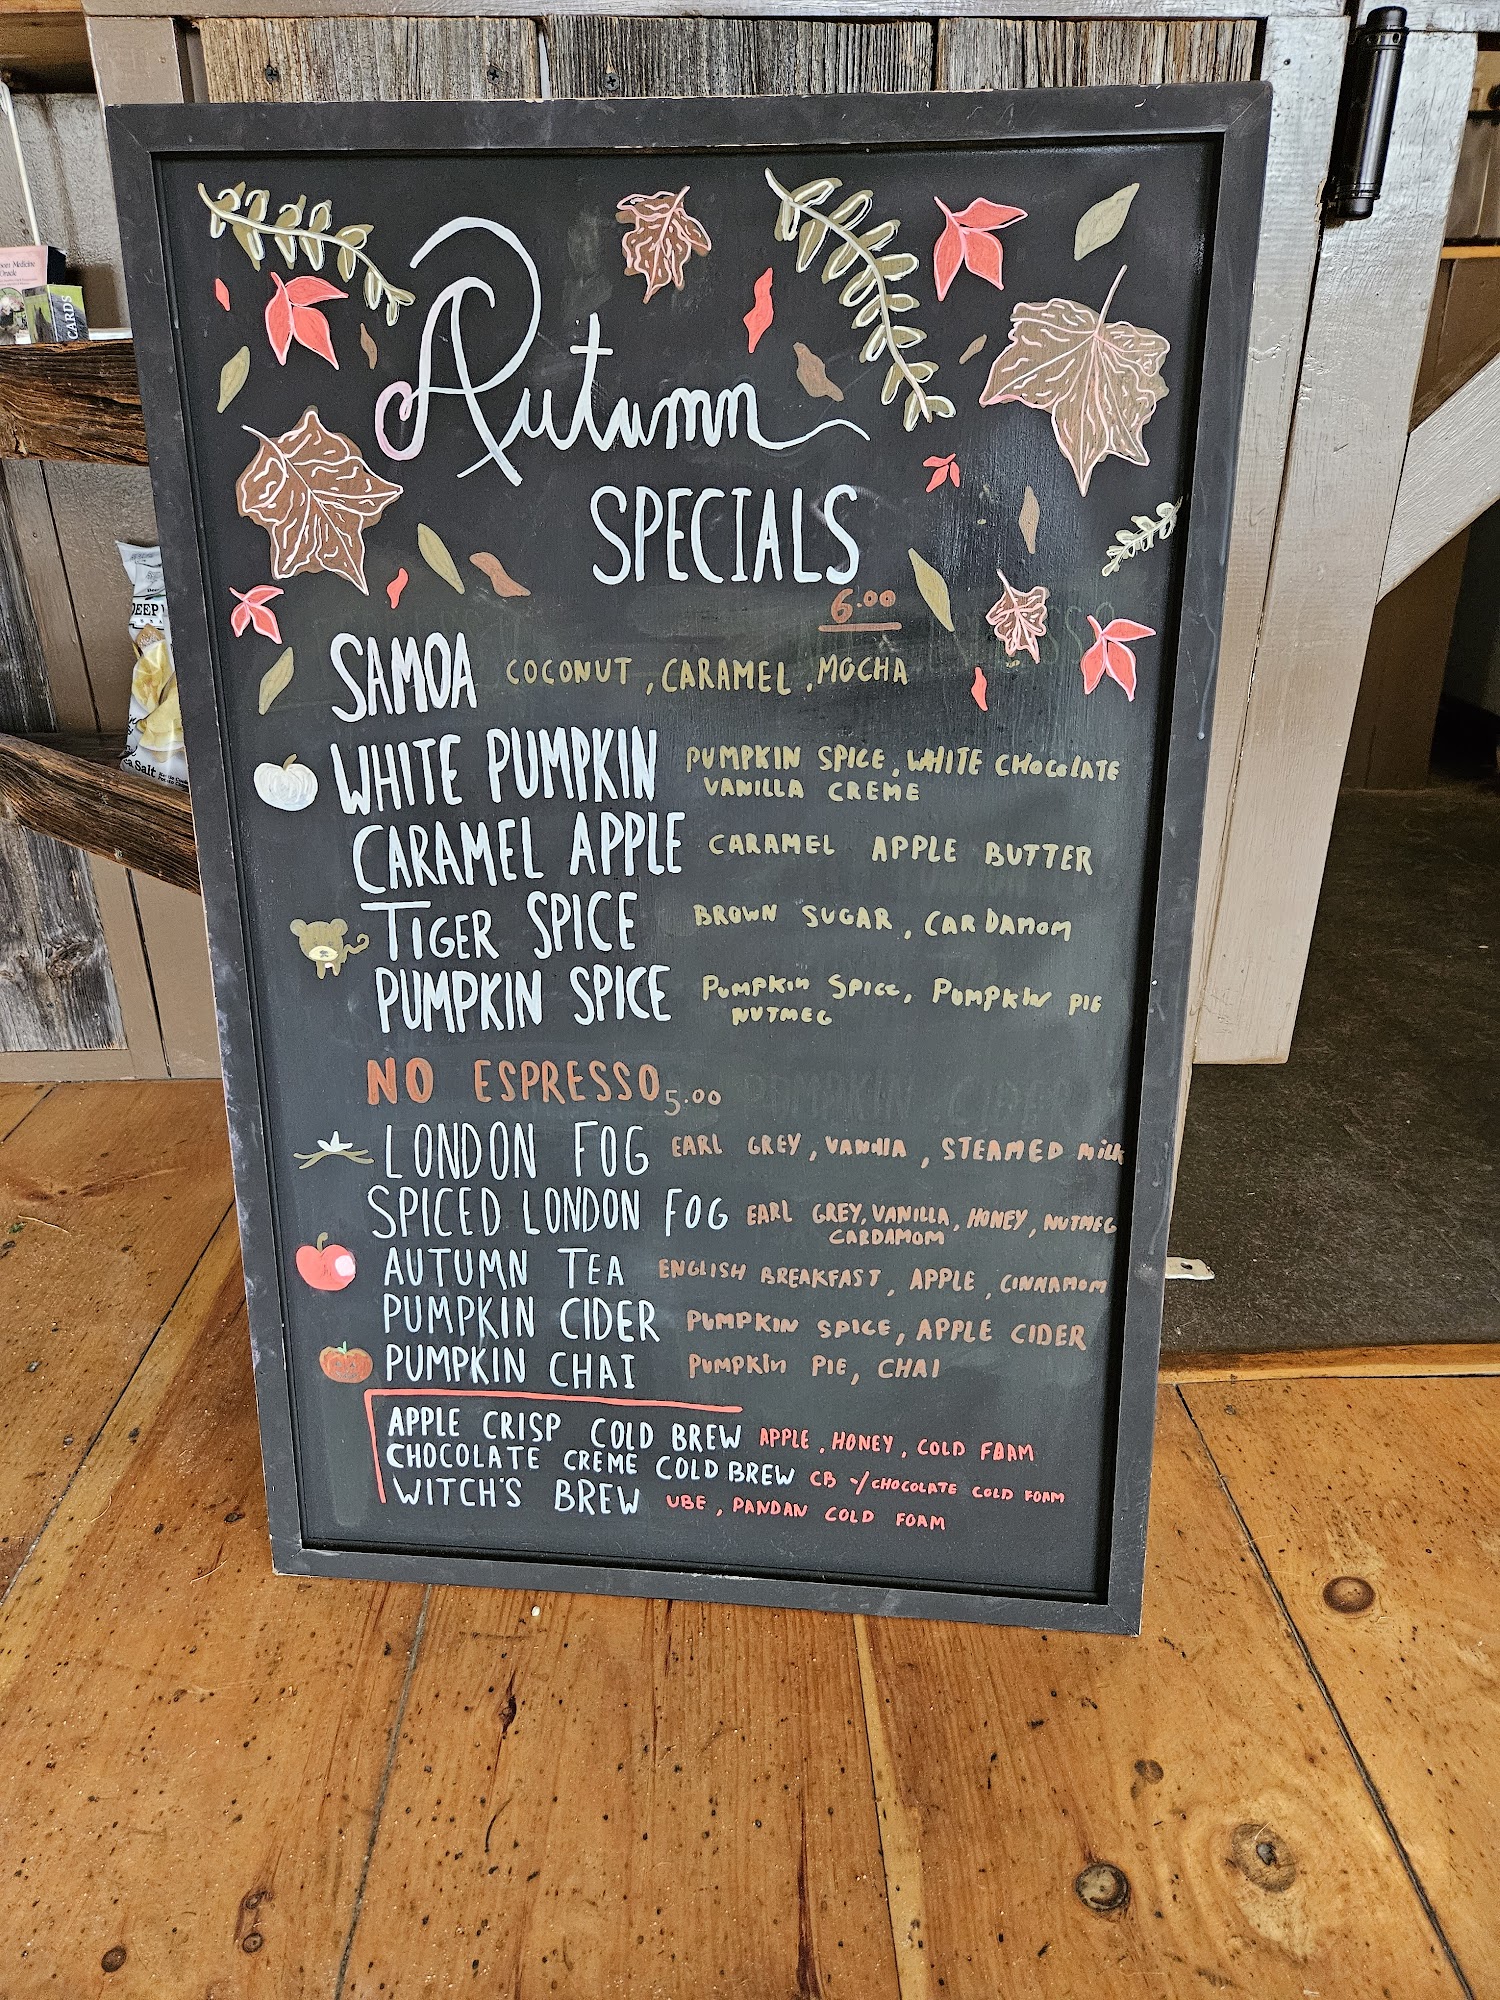 Medicine
Oracle
CARDS
DEEP
Sea Salt
Autumn
SPECIALS
6.00
SAMOA COCONUT, CARAMEL, MOCHA
WHITE PUMPKIN PUMPKIN SPICE, WHITE CHOCOLATE
VANILLA CREME
CARAMEL APPLE CARAMEL APPLE BUTTER
TIGER SPICE BROWN SUGAR, CARDAMOM
PUMPKIN SPICE PUMPKIN SPICE, PUMPKIN PIE
NUTMEG
NO ESPRESSO 5.00
LONDON FOG EARL GREY, VANILLA, STEAMED MILK
SPICED LONDON FOG EARL GREY, VANILLA, HONEY, NUTMEG
CARDAMOM
AUTUMN TEA ENGLISH BREAKFAST, APPLE, CINNAMOM
PUMPKIN CIDER PUMPKIN SPICE, APPLE CIDER
PUMPKIN CHAI PUMPKIN PIE, CHAI
APPLE CRISP COLD BREW APPLE, HONEY, COLD FOAM
CHOCOLATE CREME COLD BREW CB -/CHOCOLATE COLD FOAM
WITCH'S BREW UBE, PANDAN COLD FOAM